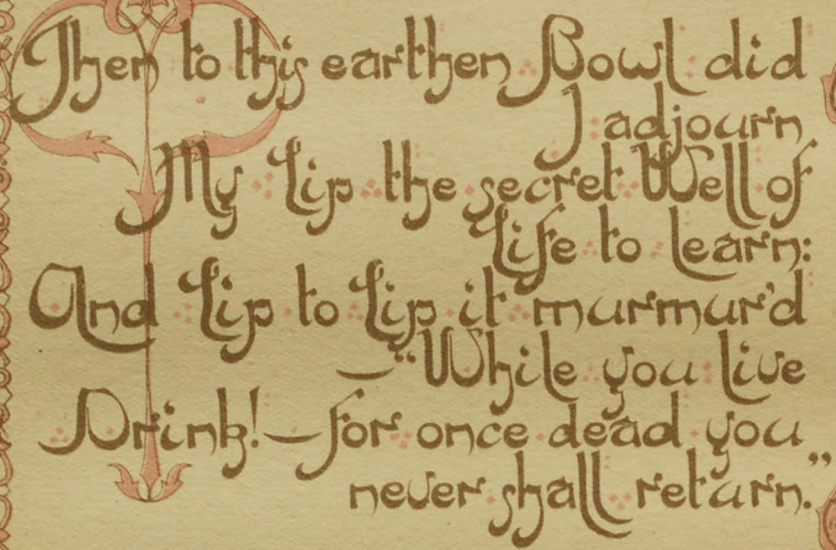 Then to this earthen Bowl did
I adjourn
My Lip the secret Well of
Life to learn:
And Lip to Lip it murmur'd
—"While you live
Drink!—for once dead you
never shall return."